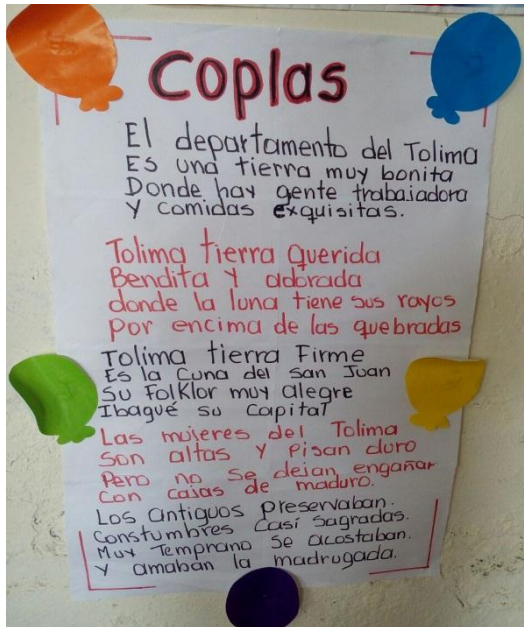 Coplas
El departamento del Tolima
Es una tierra muy bonita
Donde hay gente trabajadora
Y comidas exquisitas.
Tolima tierra querida
Bendita y adorada
donde la luna tiene sus rayos
por encima de las quebradas
Tolima tierra Firme
Es la Cuna del san Juan
Su Folklor muy alegre
Ibagué su Capital
Las mujeres del Tolima
son altas y pisan duro
Pero no se dejan engañar
Con cajas de maduro.
Los antiguos preservaban.
Constumbres Casi sagradas.
Muy Temprano se acostaban.
Y amaban la madrugada.